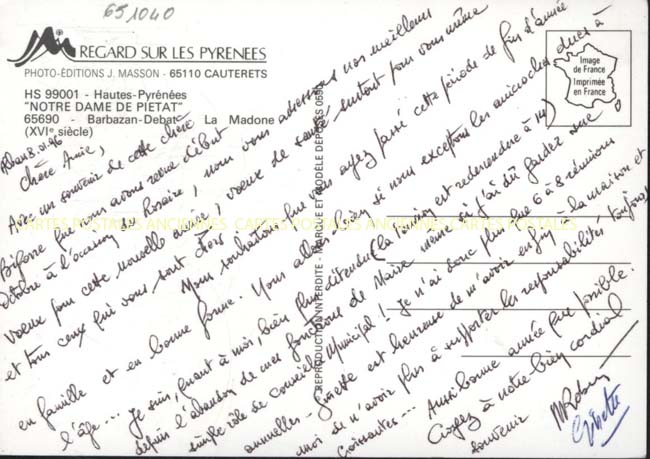 651040
REGARD SUR LES PYRENEES
PHOTO-ÉDITIONS J. MASSON - 65110 CAUTERETS
HS 99001 - Hautes-Pyrénées
"NOTRE DAME DE PIETAT"
65690 - Barbazan-Debat - La Madone
(XVIe siècle)
Image
de France
Imprimée
en France
REPRODUCTION INTERDITE - MARQUE ET MODÈLE DÉPOSÉS
CARTES POSTALES ANCIENNES CARTES POSTALES ANCIENNES CARTES POSTALES
Chère Amie,
Avec un souvenir de cette chère
Bigorre que nous avons revue début
Octobre à l'occasion du Rosaire, nous vous adressons nos meilleurs
voeux pour cette nouvelle année, voeux de santé surtout pour vous même
et tous ceux qui vous sont chers.
Nous souhaitons que vous ayez passé cette période de fins d'année
en famille et en bonne forme. Nous allons bien si nous exceptons les anicroches dues à
l'âge... Je suis, quant à moi, bien plus détendu (la tension est redescendue à 14)
depuis l'abandon de mes fonctions de Maire mais j'ai dû garder une
simple rôle de Conseiller Municipal! Je n'ai donc plus que 6 à 8 réunions
annuelles - Ginette est heureuse de m'avoir enfin à la maison et
moi de n'avoir plus à supporter les responsabilités toujours
croissantes...
Aussi bonne année que possible.
Croyez à notre bien cordial
souvenir
Ginette